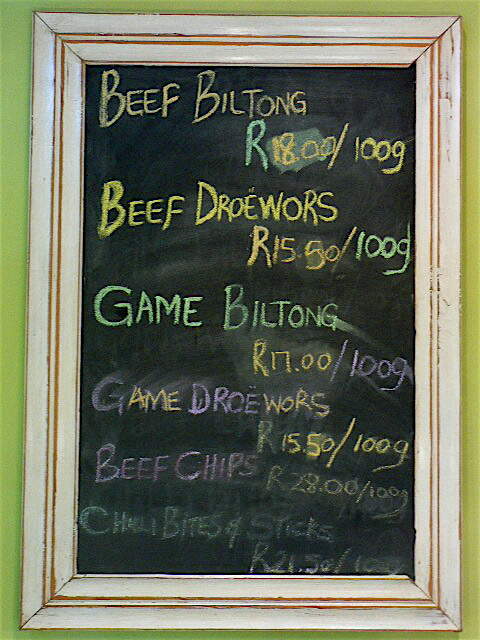 BEEF BILTONG
R18.00/100g
BEEF DROËWORS
R15.50/100g
GAME BILTONG
R17.00/100g
GAME DROËWORS
R15.50/100g
BEEF CHIPS
R28.00/100g
CHILLI BITES & STICKS
R21.50/100g